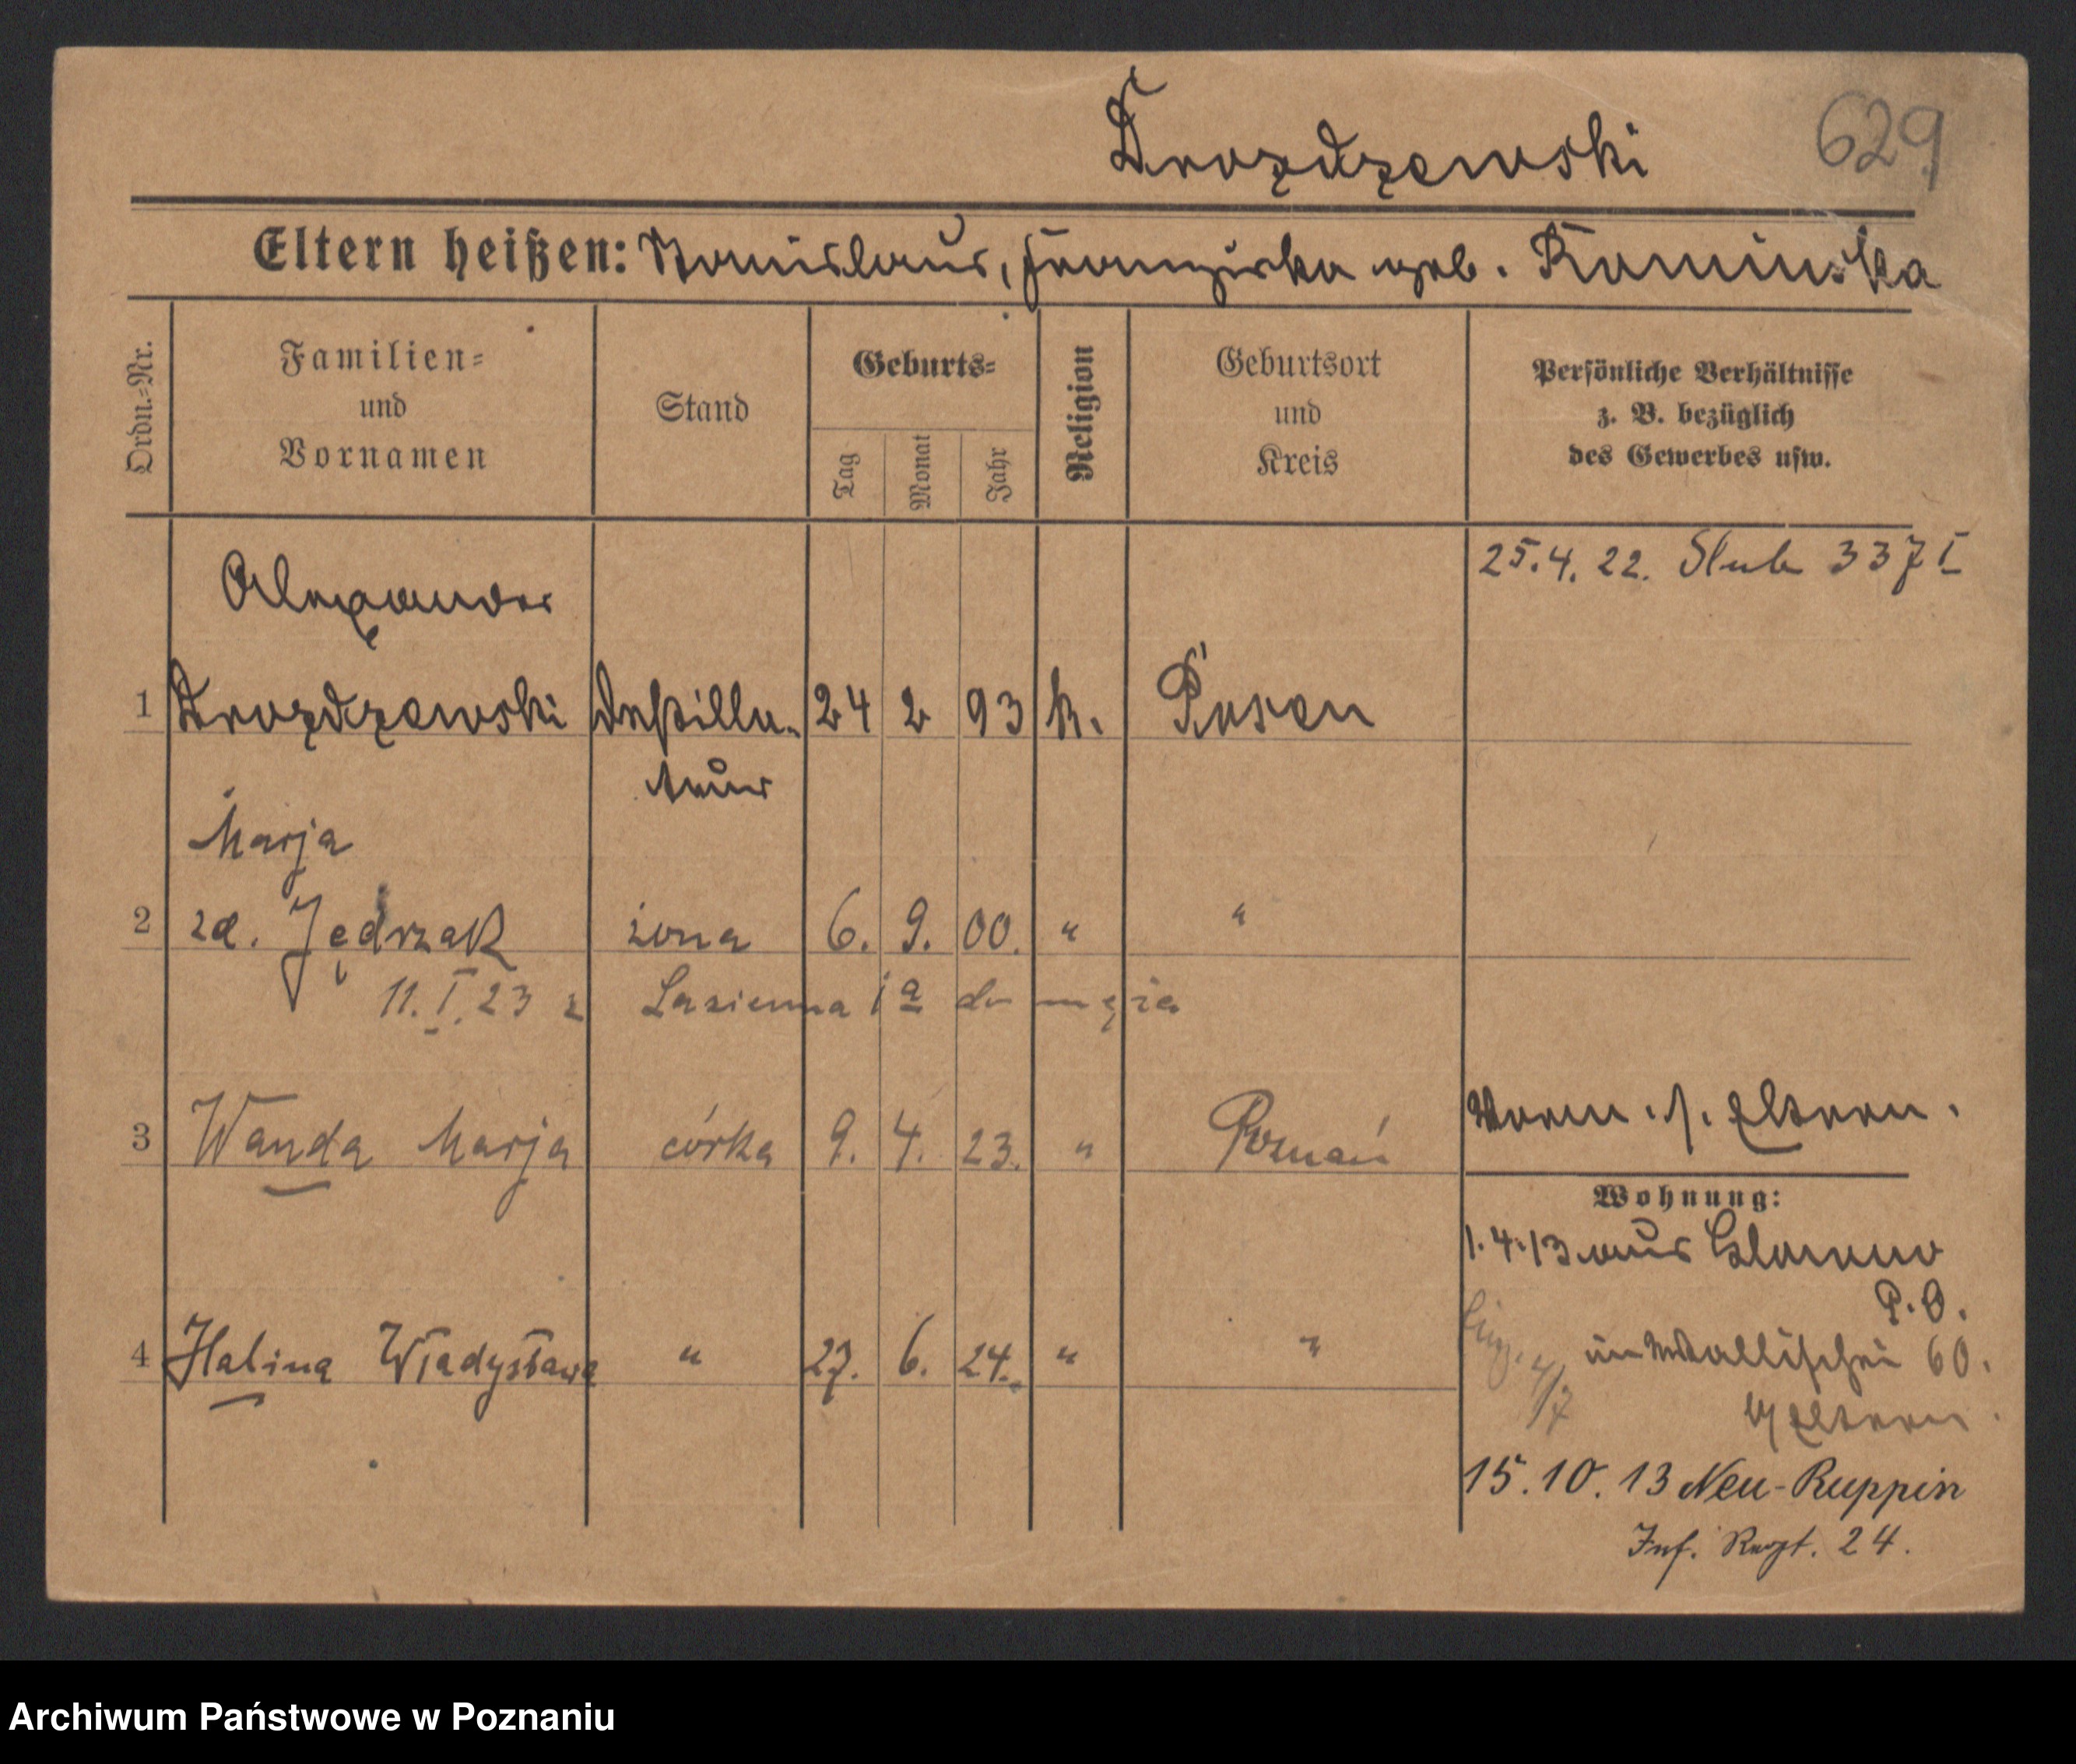 Drozdzewski
629
Eltern heißen: Stanislaus, Franziska geb. Kaminska
Ordn.-Nr.
Familien- und Vornamen
Stand
Geburts-
Tag
Monat
Jahr
Religion
Geburtsort und Kreis
Persönliche Verhältnisse z. B. bezüglich des Gewerbes usw.
25.4.22. Slub 337 I
Alexander
1 Drozdzewski Destilla- 24 2 93 k. Posen
teur
Marja
2 zd. Jędrzak żona 6. 9. 00. " "
11.I.23 z Lazienna 1a do męża
3 Wanda Marja córka 9. 4. 23. " Poznań
Verm. s. Eltern.
Wohnung:
1.4.13 aus Glowno
P.O.
4 Halina Władysława " 27. 6. 24. " "
4/7
Wallischei 60.
b/ Eltern.
15.10.13 Neu-Ruppin
Inf. Regt. 24.
Archiwum Państwowe w Poznaniu